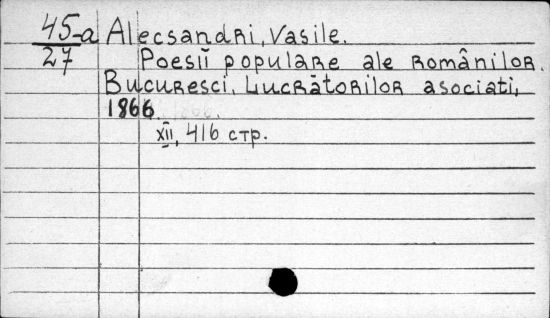 45-a
27
Alecsandri, Vasile.
Poesiĭ populare ale Românilor.
Bucuresci, Lucrătorilor asociati,
1866.
XII, 416 стр.